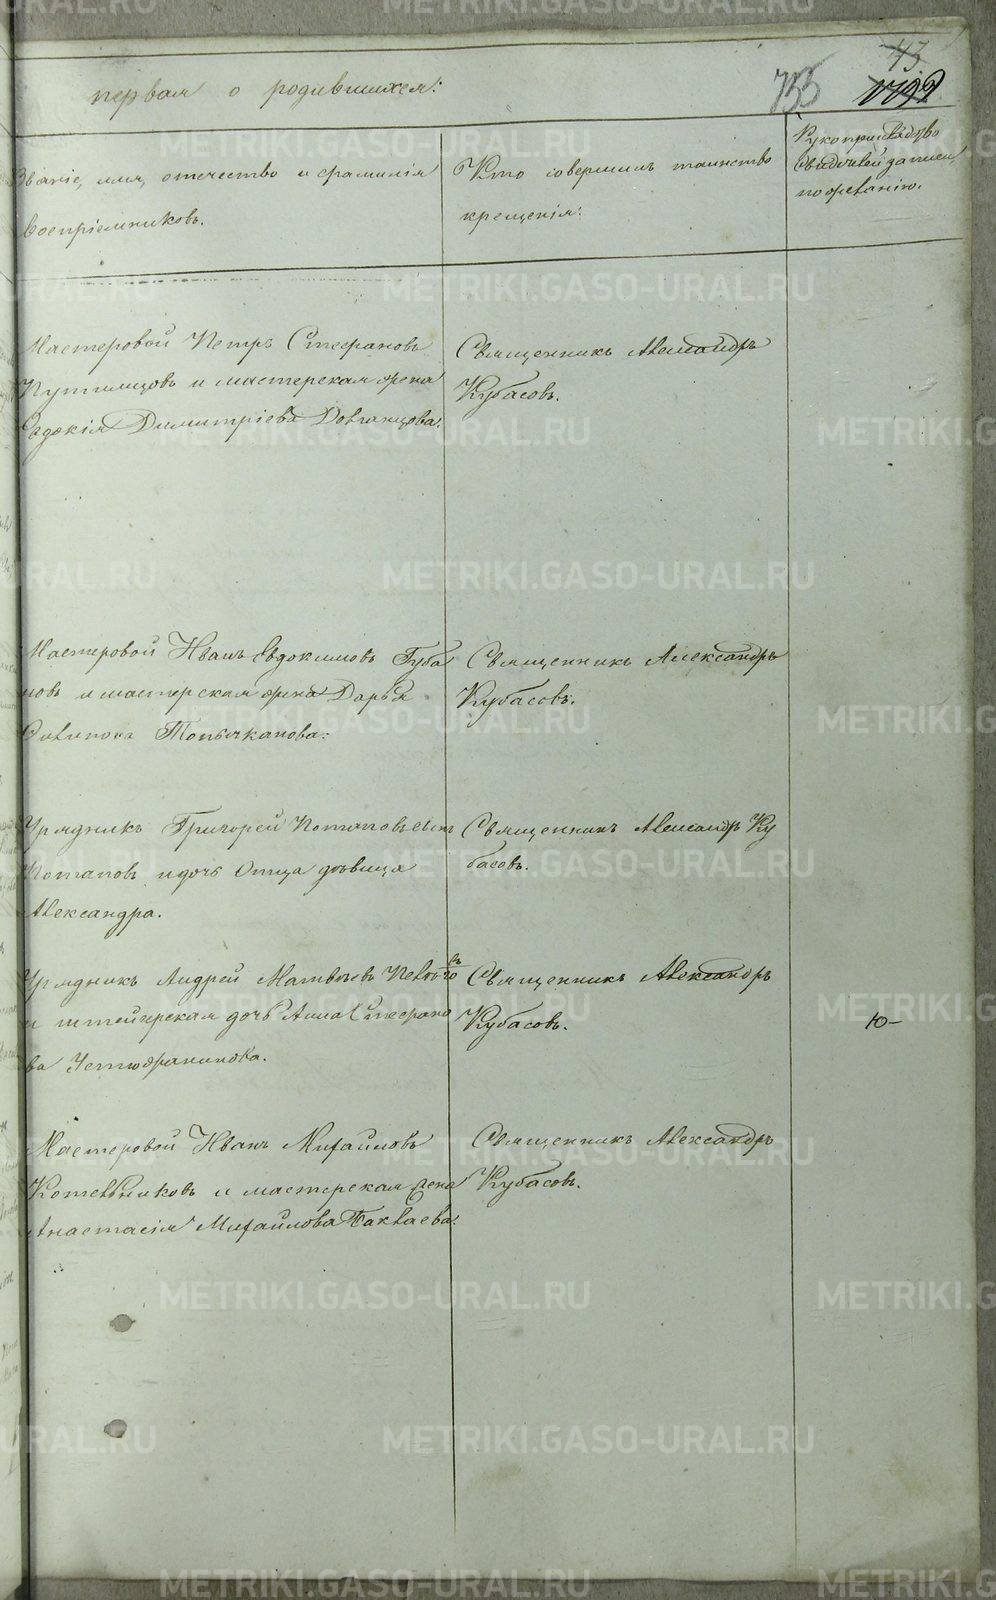 43
755
первая о родившихся:
Званіе, имя, отечество и фамилія
Воспріемниковъ.
Кто совершилъ таинство
крещенія:
Рукоприкладство
свидѣтелей записи
по желанію.
Мастеровой Петръ Стефановъ
Путимцовъ и мастерская жена
Евдокія Димитріева Довганцова.
Священникъ Александръ
Кубасовъ.
Мастеровой Иванъ Евдокимовъ Губа
новъ и мастерская жена Дарья
Топычканова.
Священникъ Александръ
Кубасовъ.
Урядникъ Григорей Потаповъ сынъ
Потаповъ и дочь отца дѣвица
Александра.
Священникъ Александръ Ку
басовъ.
Урядникъ Андрей Матвѣевъ
и штейгерская дочь Анна Стефано
ва Устюжанинова.
Священникъ Александръ
Кубасовъ.
Ю-
Мастеровой Иванъ Михайловъ
Котельниковъ и мастерская жена
Анастасія Михайлова Паклаева.
Священникъ Александръ
Кубасовъ.
METRIKI.GASO-URAL.RU